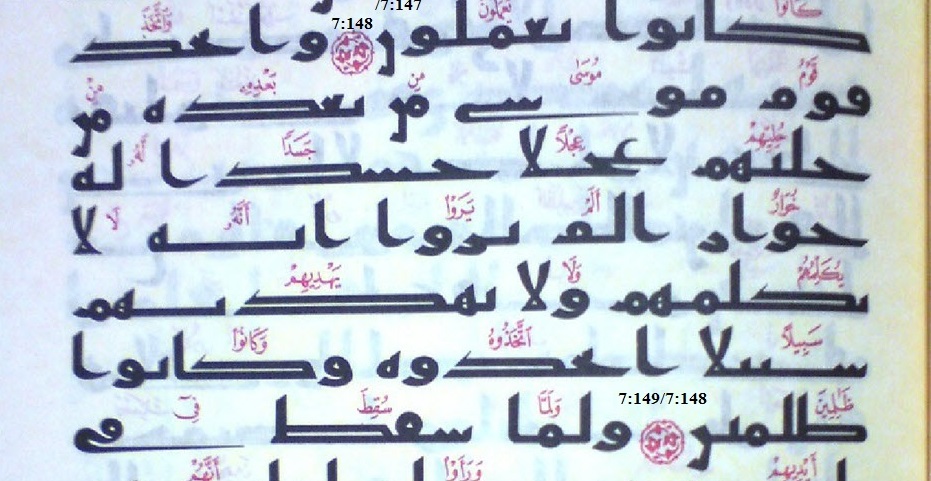 7:147/
7:148
كَانُوا يَعْمَلُونَ وَاتَّخَذَ
كانوا يعملون واتخذ
قَوْمُ مُوسَىٰ مِن بَعْدِهِ مِنْ
قوم موسى من بعده من
حُلِيِّهِمْ عِجْلًا جَسَدًا لَّهُ
حليهم عجلا جسدا له
خُوَارٌ أَلَمْ يَرَوْا أَنَّهُ لَا
خوار الم يروا انه لا
يُكَلِّمُهُمْ وَلَا يَهْدِيهِمْ
يكلمهم ولا يهديهم
سَبِيلًا ٱتَّخَذُوهُ وَكَانُوا
سبيلا اتخذوه وكانوا
7:149/7:148
ظَٰلِمِينَ وَلَمَّا سُقِطَ فِىٓ
ظلمين ولما سقط في
أَيْدِيهِمْ وَرَأَوْا أَنَّهُمْ